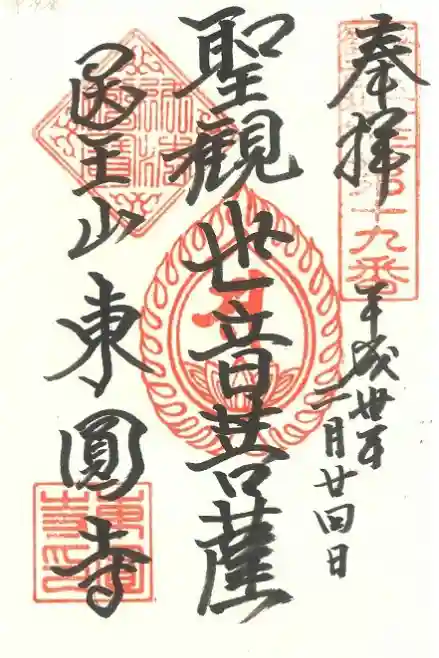 奉拝
十九番
平成卅年
二月廿四日
聖観世音菩薩
医王山
東圓寺